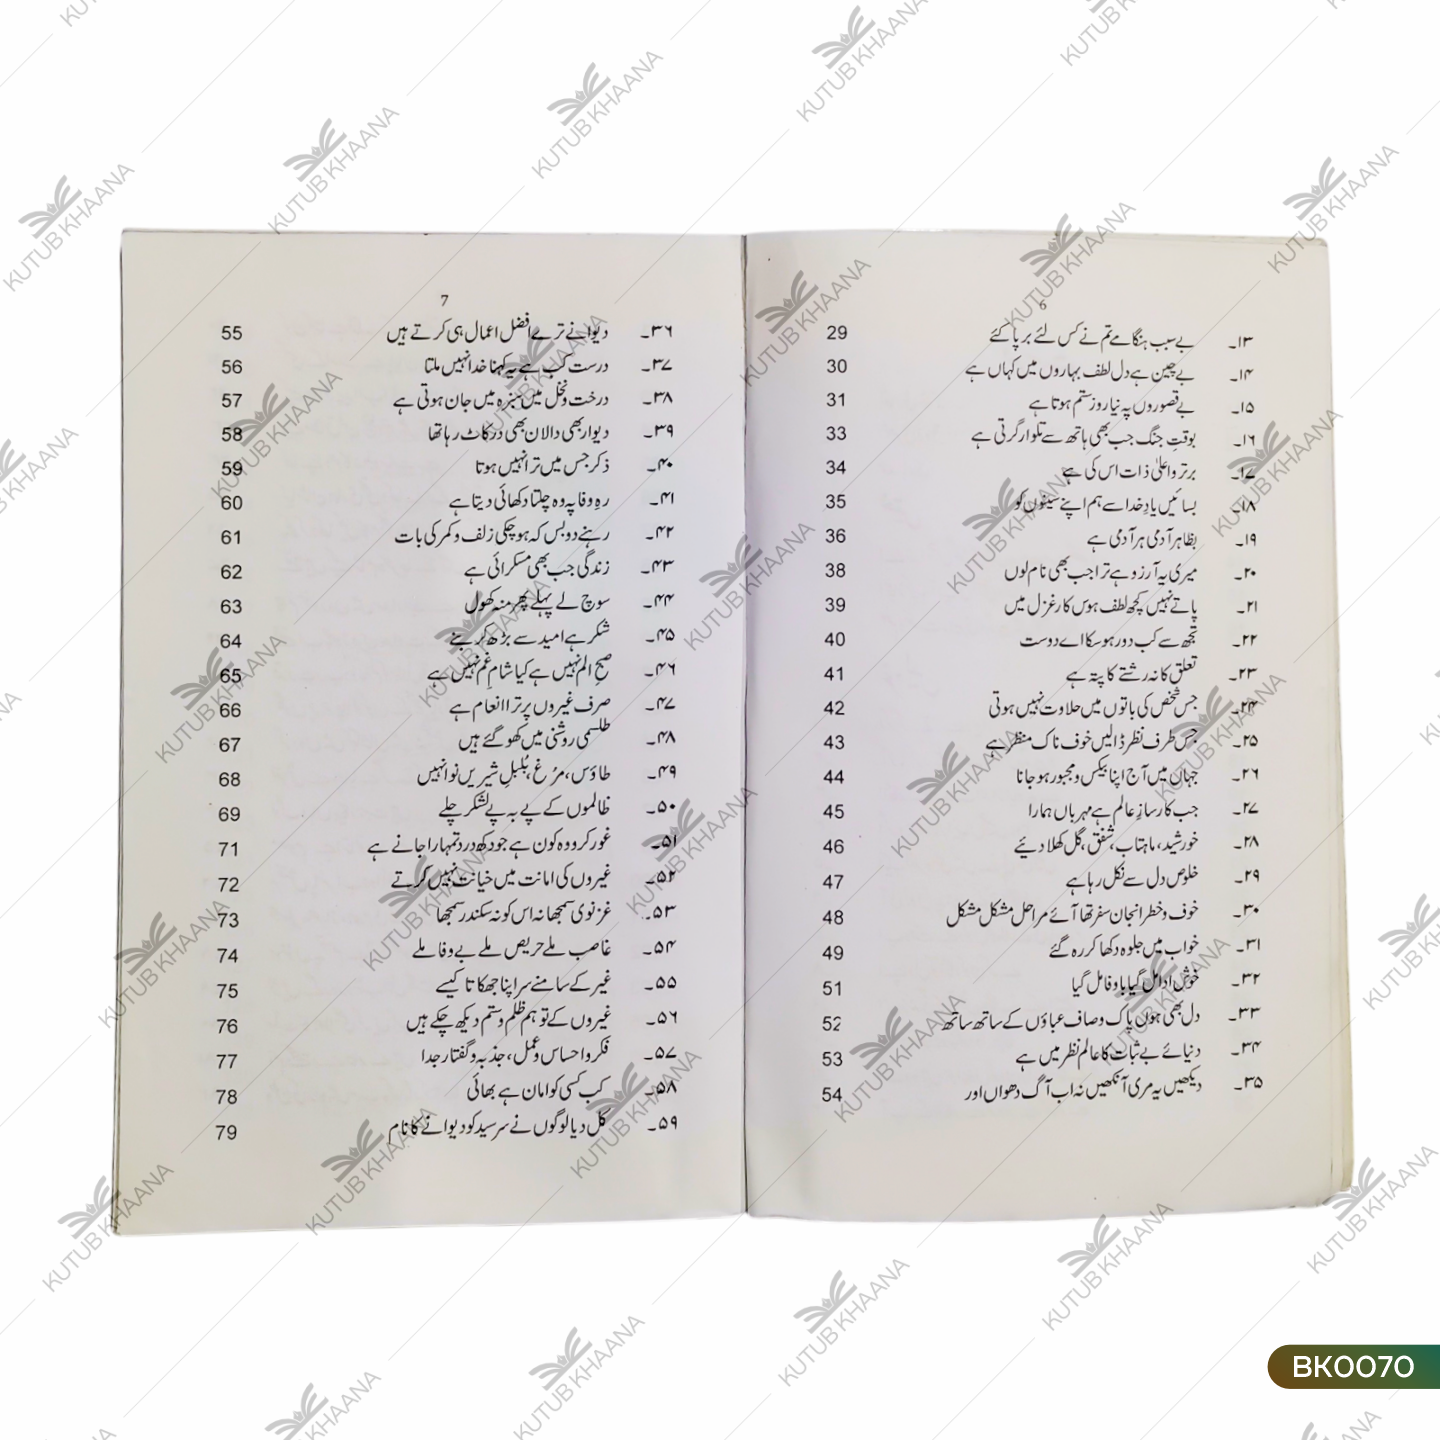 6
۱۳۔ بے سبب ہنگامے تم نے کس لئے برپا کئے 29
۱۴۔ بے چین ہے دل لطف بہاروں میں کہاں ہے 30
۱۵۔ بے قصوروں پہ نیا روز ستم ہوتا ہے 31
۱۶۔ بوقتِ جنگ جب بھی ہاتھ سے تلوار گرتی ہے 33
۱۷۔ برتر و اعلیٰ ذات اس کی ہے 34
۱۸۔ بسائیں یادِ خدا سے ہم اپنے سینوں کو 35
۱۹۔ بظاہر آدمی ہر آدمی ہے 36
۲۰۔ میری یہ آرزو ہے ترا جب بھی نام لوں 38
۲۱۔ پاتے نہیں کچھ لطف ہوس کار غزل میں 39
۲۲۔ تجھ سے کب دور ہو سکا اے دوست 40
۲۳۔ تعلق کا نہ رشتے کا پتہ ہے 41
۲۴۔ جس شخص کی باتوں میں حلاوت نہیں ہوتی 42
۲۵۔ جس طرف نظر ڈالیں خوف ناک منظر ہے 43
۲۶۔ جہان میں آج اپنا بیکس و مجبور ہو جانا 44
۲۷۔ جب کارسازِ عالم ہے مہرباں ہمارا 45
۲۸۔ خورشید، ماہتاب، شفق، گل کھلا دئیے 46
۲۹۔ خلوص دل سے نکل رہا ہے 47
۳۰۔ خوف و خطر انجان سفر تھا آئے مراحل مشکل مشکل 48
۳۱۔ خواب میں جلوہ دکھا کر رہ گئے 49
۳۲۔ خوش ادا مل گیا با وفا مل گیا 51
۳۳۔ دل بھی ہوں پاک و صاف عباؤں کے ساتھ ساتھ 52
۳۴۔ دنیائے بے ثبات کا عالم نظر میں ہے 53
۳۵۔ دیکھیں یہ مری آنکھیں نہ اب آگ دھواں اور 54
7
۳۶۔ دیوانے ترے افضل اعمال ہی کرتے ہیں 55
۳۷۔ درست کب ہے یہ کہنا خدا نہیں ملتا 56
۳۸۔ درخت و نخل میں سبزہ میں جان ہوتی ہے 57
۳۹۔ دیوار بھی دالان بھی در کاٹ رہا تھا 58
۴۰۔ ذکر جس میں ترا نہیں ہوتا 59
۴۱۔ رہِ وفا پہ وہ چلتا دکھائی دیتا ہے 60
۴۲۔ رہنے دو بس کہ ہو چکی زلف و کمر کی بات 61
۴۳۔ زندگی جب بھی مسکرائی ہے 62
۴۴۔ سوچ لے پہلے پھر منہ کھول 63
۴۵۔ شکر ہے امید سے بڑھ کر بنے 64
۴۶۔ صبحِ الم نہیں ہے کیا شامِ غم نہیں ہے 65
۴۷۔ صرف غیروں پر ترا انعام ہے 66
۴۸۔ طلسمی روشنی میں کھو گئے ہیں 67
۴۹۔ طاؤس، مرغ، بُلبلِ شیریں نوا نہیں 68
۵۰۔ ظالموں کے پے بہ پے لشکر چلے 69
۵۱۔ غور کرو وہ کون ہے جو دکھ درد تمہارا جانے ہے 71
۵۲۔ غیروں کی امانت میں خیانت نہیں کرتے 72
۵۳۔ غزنوی سمجھا نہ اس کو نہ سکندر سمجھا 73
۵۴۔ غاصب ملے حریص ملے بے وفا ملے 74
۵۵۔ غیر کے سامنے سر اپنا جھکاتا کیسے 75
۵۶۔ غیروں کے تو ہم ظلم و ستم دیکھ چکے ہیں 76
۵۷۔ فکر و احساس و عمل، جذبہ و گفتار جدا 77
۵۸۔ کب کسی کو امان ہے بھائی 78
۵۹۔ کل دیا لوگوں نے سرسید کو دیوانے کا نام 79
KUTUB KHAANA
BK0070